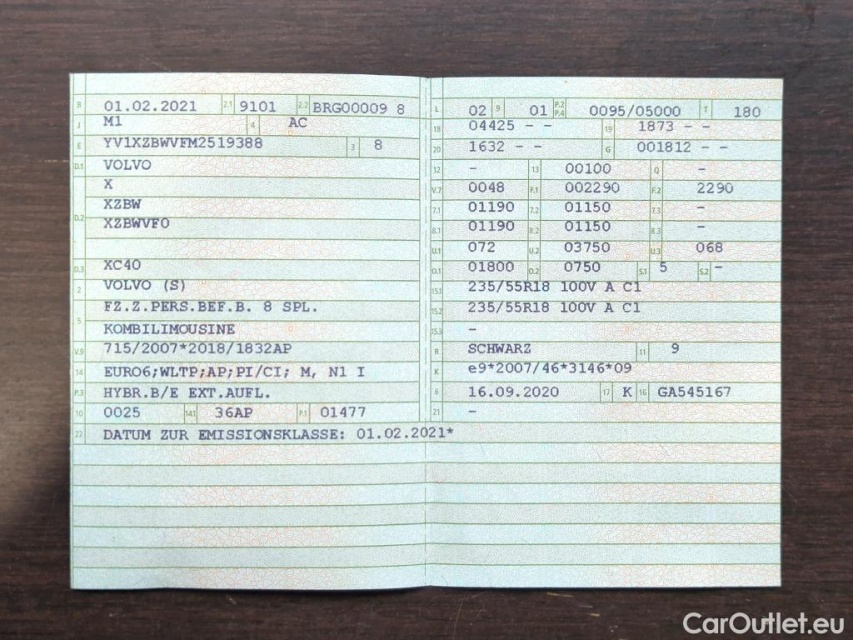 B 01.02.2021 2.1 9101 2.2 BRG00009 8
J M1 4 AC
E YV1XZBWVFM2519388 3 8
D.1 VOLVO
X
D.2 XZBW
XZBWVF0
D.3 XC40
2 VOLVO (S)
5 FZ.Z.PERS.BEF.B. 8 SPL.
KOMBILIMOUSINE
V.9 715/2007*2018/1832AP
14 EURO6;WLTP;AP;PI/CI; M, N1 I
P.3 HYBR.B/E EXT.AUFL.
10 0025 14.1 36AP P.1 01477
22 DATUM ZUR EMISSIONSKLASSE: 01.02.2021*
L 02 9 01 P.2 P.4 0095/05000 T 180
18 04425 - - 19 1873 - -
20 1632 - - G 001812 - -
12 - 13 00100 Q -
V.7 0048 F.1 002290 F.2 2290
7.1 01190 7.2 01150 7.3 -
8.1 01190 8.2 01150 8.3 -
U.1 072 U.2 03750 U.3 068
O.1 01800 O.2 0750 S.1 5 S.2 -
15.1 235/55R18 100V A C1
15.2 235/55R18 100V A C1
15.3 -
R SCHWARZ 11 9
K e9*2007/46*3146*09
6 16.09.2020 17 K 16 GA545167
21 -
CarOutlet.eu